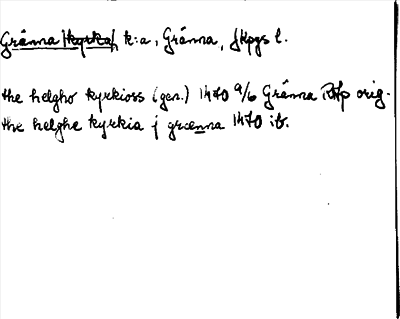 Gränna (kyrka), k:a, Gränna, Jkpgs l.
the helgho kyrkioss (gen.) 1470 9/6 Gränna RAp orig.
the helghe kyrkia j grænna 1470 ib.